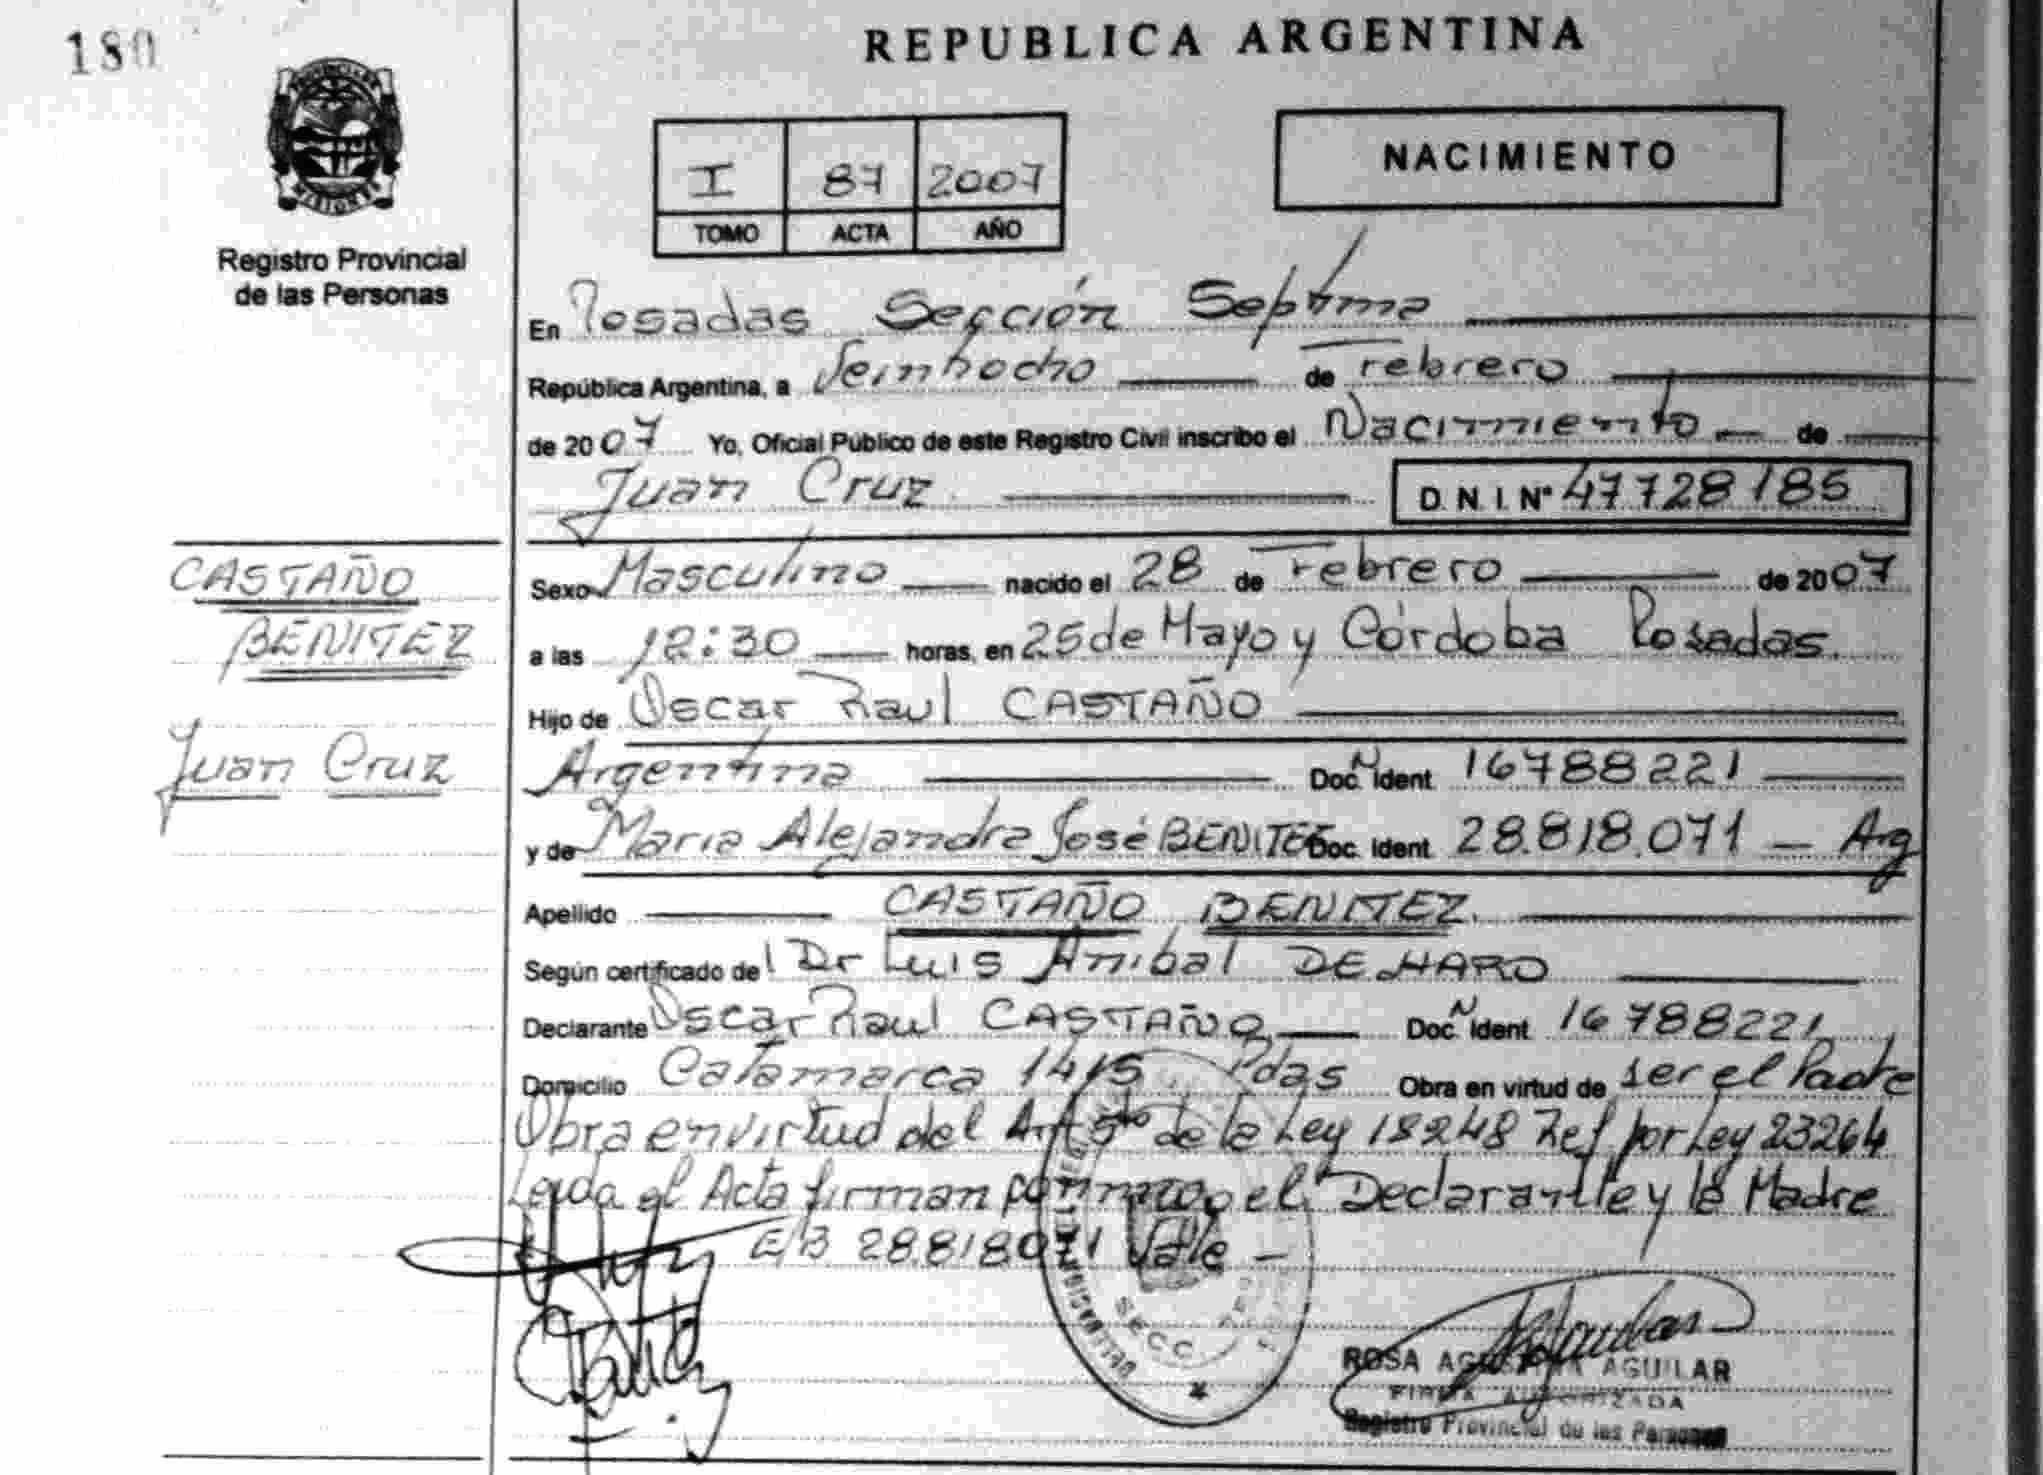 180
REPUBLICA ARGENTINA
MISIONES
Registro Provincial
de las Personas
I 87 2007
TOMO ACTA AÑO
NACIMIENTO
En Posadas Sección Septima
República Argentina, a Veintiocho de Febrero
de 2007 Yo, Oficial Público de este Registro Civil inscribo el Nacimiento de
Juan Cruz D.N.I. Nº 47728185
CASTAÑO
BENITEZ
Juan Cruz
Sexo Masculino nacido el 28 de Febrero de 2007
a las 12:30 horas, en 25 de Mayo y Córdoba Posadas.
Hijo de Oscar Raul CASTAÑO
Argentina Doc. N Ident. 16788221
y de Maria Alejandra José BENITEZ Doc. Ident. 28.818.071 — Arg
Apellido CASTAÑO BENITEZ.
Según certificado del Dr Luis Anibal DE HARO
Declarante Oscar Raul CASTAÑO Doc. N Ident. 16788221
Domicilio Catamarca 1415 Pdas Obra en virtud de ser el Padre
Obra en virtud del Art 5to de la Ley 18248 Ref por Ley 23264
Leida el Acta firman el Declarante y la Madre
E/B 28.818071 Vale —
DELEGACION
SECC
ROSA AGUILAR
FIRMA AUTORIZADA
Registro Provincial de las Personas